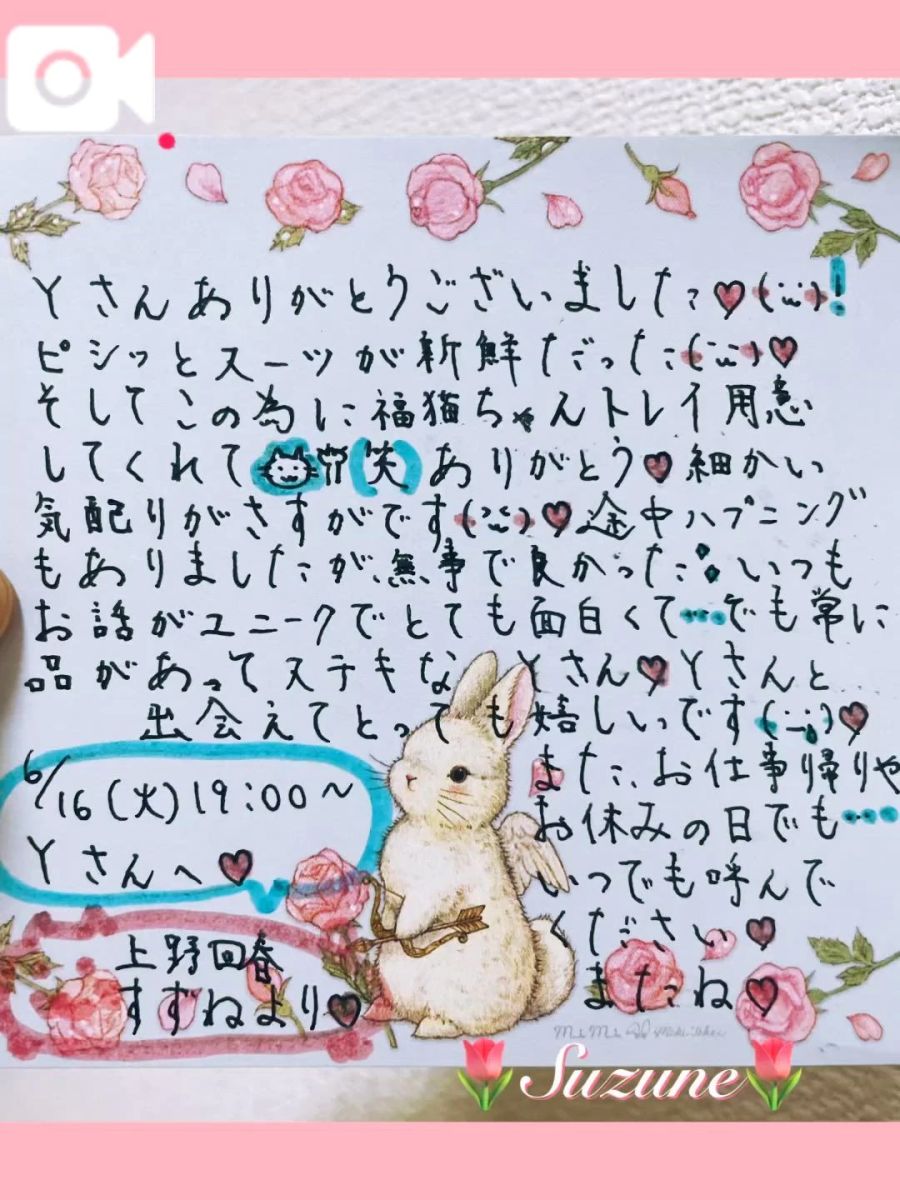 Yさんありがとうございました♥(¨̮)!
ピシッとスーツが新鮮だった(¨̮)♥
そしてこの為に福猫ちゃんトレイ用意
してくれて(笑)ありがとう♥細かい
気配りがさすがです(¨̮)♥途中ハプニング
もありましたが、無事で良かった いつも
お話がユニークでとても面白くて…でも常に
品があってステキなYさん♥Yさんと
出会えてとっても嬉しいっです(¨̮)♥
また、お仕事帰りや
お休みの日でも…
いつでも呼んで
ください♥
またね♥
6/16(火)19:00~
Yさんへ♥
上野回春
すずねより♥
Suzune